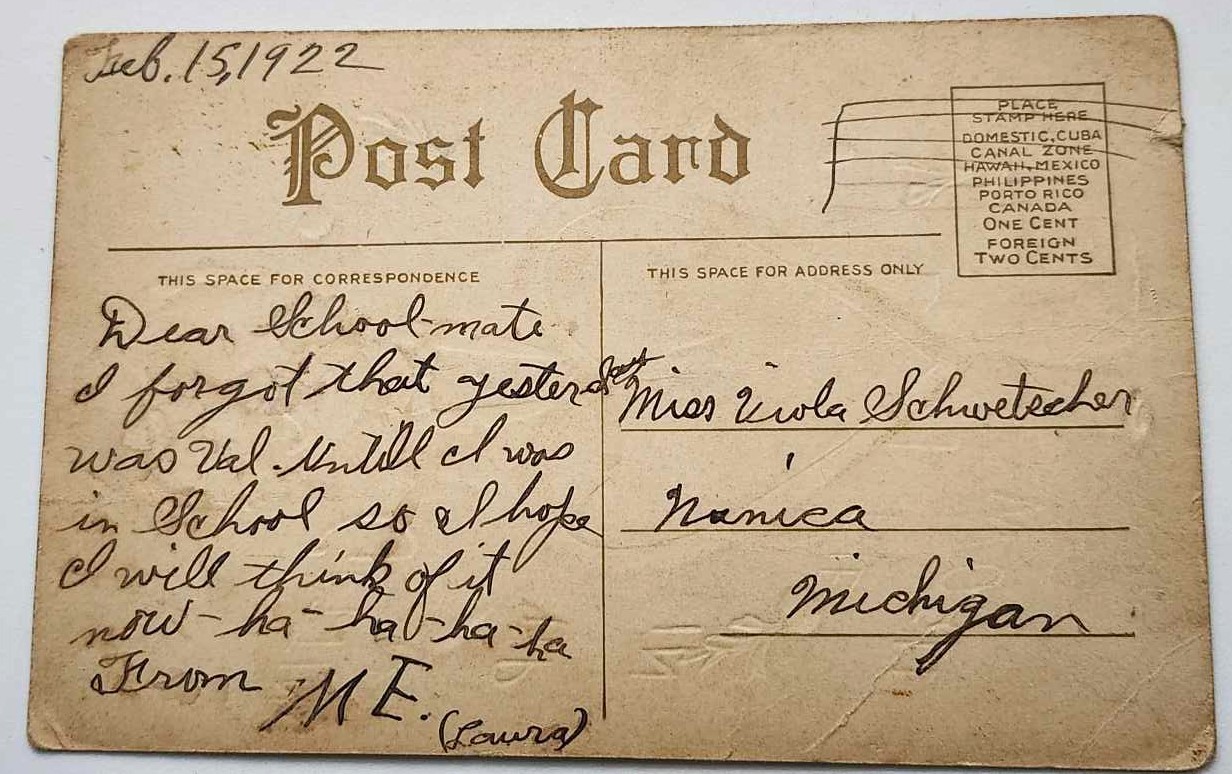 Feb. 15, 1922
Post Card
PLACE
STAMP HERE
DOMESTIC, CUBA
CANAL ZONE
HAWAII, MEXICO
PHILIPPINES
PORTO RICO
CANADA
ONE CENT
FOREIGN
TWO CENTS
THIS SPACE FOR CORRESPONDENCE
Dear School-mate
I forgot that yesterday
was Val. Untill I was
in School so I hope
I will think of it
now - ha - ha - ha - ha
From M E.
(Laura)
THIS SPACE FOR ADDRESS ONLY
Miss Viola Schwetscher
Nunica
Michigan